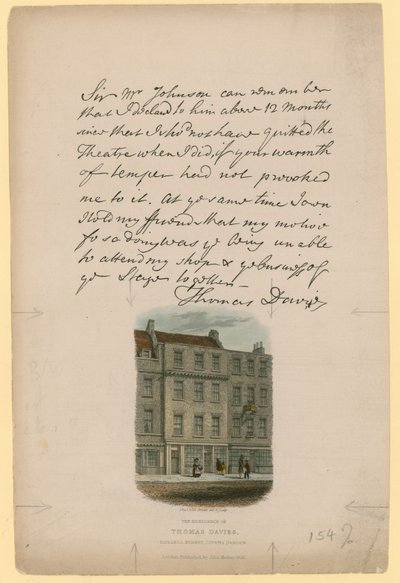 Sir Mr Johnson can remember
that I declared to him above 12 Months
since that I shod not have quitted the
Theatre when I did, if your warmth
of temper had not provoked
me to it. At ye same time I own
I told my friends that my motive
for so doing was ye being unable
to attend my shop & ye business of
ye Stage together
Thomas Davies
THE RESIDENCE OF
THOMAS DAVIES,
RUSSELL STREET, COVENT GARDEN.
London, Published by John Murray
154